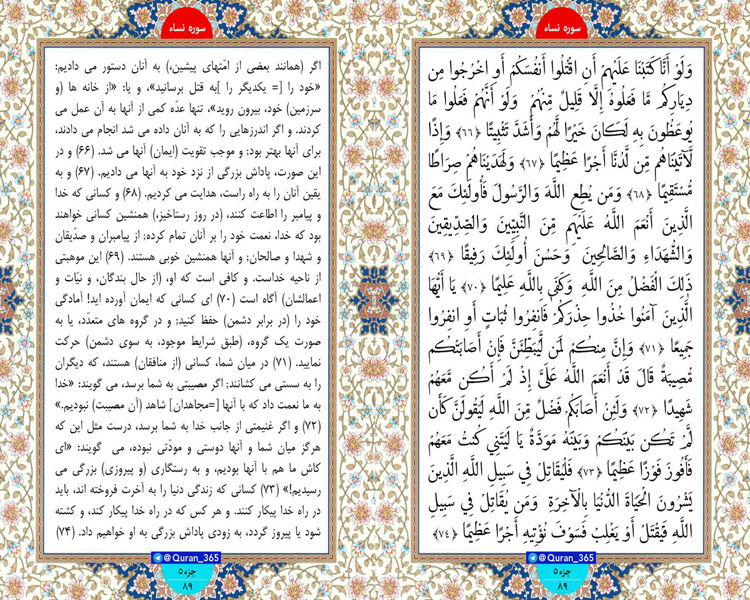 سوره نساء
وَلَوْ أَنَّا كَتَبْنَا عَلَيْهِمْ أَنِ اقْتُلُوا أَنْفُسَكُمْ أَوِ اخْرُجُوا مِن
دِيَارِكُم مَّا فَعَلُوهُ إِلَّا قَلِيلٌ مِّنْهُمْ وَلَوْ أَنَّهُمْ فَعَلُوا مَا
يُوعَظُونَ بِهِ لَكَانَ خَيْرًا لَّهُمْ وَأَشَدَّ تَثْبِيتًا ﴿۶۶﴾ وَإِذًا
لَّآتَيْنَاهُم مِّن لَّدُنَّا أَجْرًا عَظِيمًا ﴿۶۷﴾ وَلَهَدَيْنَاهُمْ صِرَاطًا
مُّسْتَقِيمًا ﴿۶۸﴾ وَمَن يُطِعِ اللَّهَ وَالرَّسُولَ فَأُولَئِكَ مَعَ
الَّذِينَ أَنْعَمَ اللَّهُ عَلَيْهِم مِّنَ النَّبِيِّينَ وَالصِّدِّيقِينَ
وَالشُّهَدَاءِ وَالصَّالِحِينَ وَحَسُنَ أُولَئِكَ رَفِيقًا ﴿۶۹﴾
ذَلِكَ الْفَضْلُ مِنَ اللَّهِ وَكَفَى بِاللَّهِ عَلِيمًا ﴿۷۰﴾ يَا أَيُّهَا
الَّذِينَ آمَنُوا خُذُوا حِذْرَكُمْ فَانفِرُوا ثُبَاتٍ أَوِ انفِرُوا
جَمِيعًا ﴿۷۱﴾ وَإِنَّ مِنكُمْ لَمَن لَّيُبَطِّئَنَّ فَإِنْ أَصَابَتْكُم
مُّصِيبَةٌ قَالَ قَدْ أَنْعَمَ اللَّهُ عَلَيَّ إِذْ لَمْ أَكُن مَّعَهُمْ
شَهِيدًا ﴿۷۲﴾ وَلَئِنْ أَصَابَكُمْ فَضْلٌ مِّنَ اللَّهِ لَيَقُولَنَّ كَأَن
لَّمْ تَكُن بَيْنَكُمْ وَبَيْنَهُ مَوَدَّةٌ يَا لَيْتَنِي كُنتُ مَعَهُمْ
فَأَفُوزَ فَوْزًا عَظِيمًا ﴿۷۳﴾ فَلْيُقَاتِلْ فِي سَبِيلِ اللَّهِ الَّذِينَ
يَشْرُونَ الْحَيَاةَ الدُّنْيَا بِالْآخِرَةِ وَمَن يُقَاتِلْ فِي سَبِيلِ
اللَّهِ فَيُقْتَلْ أَوْ يَغْلِبْ فَسَوْفَ نُؤْتِيهِ أَجْرًا عَظِيمًا ﴿۷۴﴾
@Quran_365
جزء ۵
۸۹
سوره نساء
اگر (همانند بعضی از امّتهای پیشین،) به آنان دستور می دادیم:
«خود را [= یکدیگر را ]به قتل برسانید»، و یا: «از خانه ها (و
سرزمین) خود، بیرون روید»، تنها عدّه کمی از آنها به آن عمل می
کردند. و اگر اندرزهایی را که به آنان داده می شد انجام می دادند،
برای آنها بهتر بود; و موجب تقویت (ایمان) آنها می شد. (۶۶) و در
این صورت، پاداش بزرگی از نزد خود به آنها می دادیم. (۶۷) و به
یقین آنان را به راه راست، هدایت می کردیم. (۶۸) و کسانی که خدا
و پیامبر را اطاعت کنند، (در روز رستاخیز،) همنشین کسانی خواهند
بود که خدا، نعمت خود را بر آنان تمام کرده; از پیامبران و صدّیقان
و شهدا و صالحان; و آنها همنشین خوبی هستند. (۶۹) این موهبتی
از ناحیه خداست. و کافی است که او، (از حال بندگان، و نیّات و
اعمالشان) آگاه است (۷۰) ای کسانی که ایمان آورده اید! آمادگی
خود را (در برابر دشمن) حفظ کنید; و در گروه های متعدّد، یا به
صورت یک گروه، (طبق شرایط موجود، به سوی دشمن) حرکت
نمایید. (۷۱) در میان شما، کسانی (از منافقان) هستند، که دیگران
را به سستی می کشانند; اگر مصیبتی به شما برسد، می گویند: «خدا
به ما نعمت داد که با آنها [=مجاهدان] شاهد (آن مصیبت) نبودیم.»
(۷۲) و اگر غنیمتی از جانب خدا به شما برسد، درست مثل این که
هرگز میان شما و آنها دوستی و مودّتی نبوده، می گویند: «ای
کاش ما هم با آنها بودیم، و به رستگاری (و پیروزی) بزرگی می
رسیدیم!» (۷۳) کسانی که زندگی دنیا را به آخرت فروخته اند، باید
در راه خدا پیکار کنند. و هر کس که در راه خدا پیکار کند، و کشته
شود یا پیروز گردد، به زودی پاداش بزرگی به او خواهیم داد. (۷۴)
@Quran_365
جزء ۵
۸۹